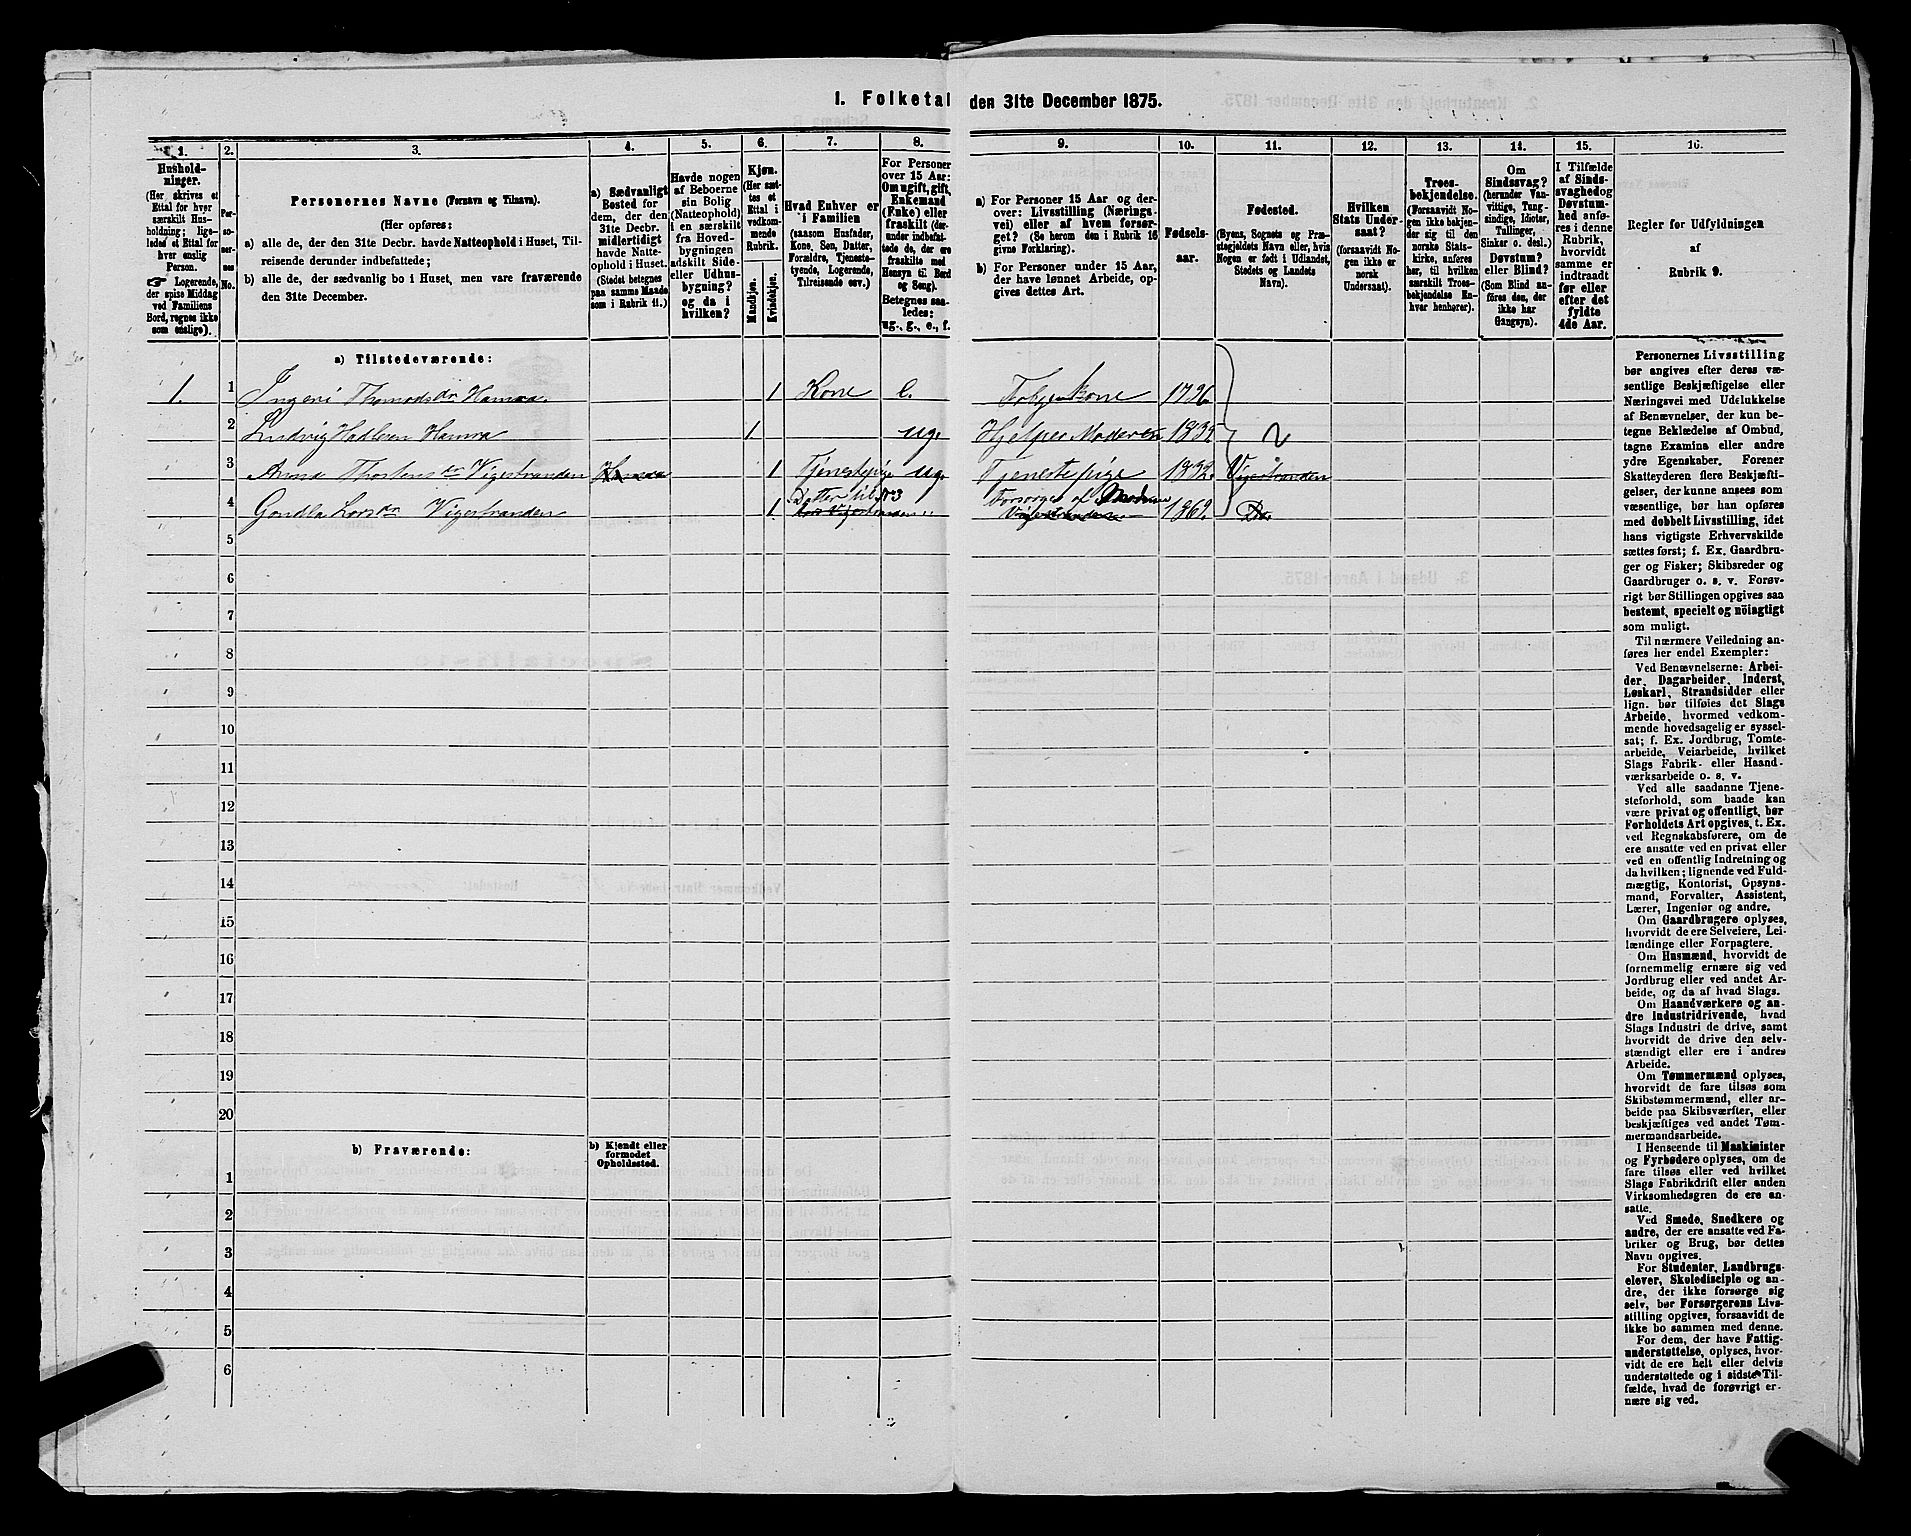 1. Folketal den 31te December 1875.
1. 2. 3. 4. 5. 6. 7. 8. 9. 10. 11. 12. 13. 14. 15. 16.
Husholdninger.
(Her skrives et
Ettal for hver
særskilt Husholdning;
ligeledes et Ettal for
hver enslig
Person.
☞ Logerende,
der spise Middag
ved Familiens
Bord, regnes ikke
som enslige).
Personernes
No.
Personernes Navne (Fornavn og Tilnavn).
(Her opføres:
a) alle de, der den 31te Decbr. havde Natteophold i Huset, Tilreisende derunder indbefattede;
b) alle de, der sædvanlig bo i Huset, men vare fraværende
den 31te December.
a) Sædvanligt
Bosted for
dem, der den
31te Decbr.
midlertidigt
havde Natteophold i Huset.
(Stedet betegnes
paa samme Maade
som i Rubrik 11.)
Havde nogen
af Beboerne
sin Bolig
(Natteophold)
i en særskilt
fra Hovedbygningen
adskilt Side-
eller Udhusbygning?
og da i
hvilken?
Kjøn.
(Her sættes et
Ettal i
vedkommende
Rubrik.
Mandkjøn.
Kvindekjøn.
Hvad Enhver er
i Familien
(saasom Husfader,
Kone, Søn, Datter,
Forældre, Tjenestetyende, Logerende,
Tilreisende osv.)
For Personer
over 15 Aar:
Om ugift, gift,
Enkemand
(Enke) eller
fraskilt (derunder indbefattede de, der ere
fraskilte med
Hensyn til Bord
og Seng).
Betegnes saaledes:
ug., g., e., f.
a) For Personer 15 Aar og derover: Livsstilling (Næringsvei) eller af hvem forsørget? (Se herom den i Rubrik 16
givne Forklaring).
b) For Personer under 15 Aar,
der have lønnet Arbeide, opgives dettes Art.
Fødselsaar.
Fødested.
(Byens, Sognets og Præstegjeldets Navn eller, hvis
Nogen er født i Udlandet,
Stedets og Landets
Navn).
Hvilken
Stats Undersaat?
(forsaavidt Nogen ikke er
norsk
Undersaat).
Troesbekjendelse.
(Forsaavidt Nogen ikke bekjender sig til den
norske Statskirke, anføres
her, til hvilken
særskilt Troesbekjendelse Enhver henhører).
Om
Sindssvag?
(herunder Vanvittige, Tungsindige, Idioter,
Sinker o. desl.)
Døvstum?
eller Blind?
(Som Blind anføres den, der
ikke har
Gangsyn).
I Tilfælde
af Sindssvaghed og
Døvstumhed anføres i denne
Rubrik,
hvorvidt
samme er
indtraadt
før eller
efter det
fyldte
4de Aar.
Regler for Udfyldningen
af
Rubrik 9.
a) Tilstedeværende:
1. 1 Ingeri Thomasdr Hamra. 1 Kone e. 1796
2 Ludvig Hadlesen Hamra 1. ug. Hjelper Moderen
3 Anna Thorstensdr Vigestranden Hamra 1 Tjenestepige ug. Tjenestepige 1832. Vigestranden
4 Gondla Larsdr Vigestranden 1 Datter til No 3 Forsørges af Moderen Vigestranden 186 Do.
5
6
7
8
9
10
11
12
13
14
15
16
17
18
19
20
b) Fraværende:
b) Kjendt eller
formodet
Opholdssted.
1
2
3
4
5
6
Personernes Livsstilling
bør angives efter deres væsentlige Beskjæftigelse eller
Næringsvei med Udelukkelse
af Benævnelser, der kun betegne Beklædelse af Ombud,
tagne Examina eller andre
ydre Egenskaber. Forener
Skatteyderen flere Beskjæftigelser, der kunne ansees som
væsentlige, bør han opføres
med dobbelt Livsstilling, idet
hans vigtigste Erhvervskilde
sættes først; f. Ex. Gaardbruger og Fisker; Skibsreder og
Gaardbruger o. s. v. Forøvrigt bør Stillingen opgives saa
bestemt, specielt og nöiagtigt
som muligt.
Til nærmere Veiledning anføres her endel Exempler:
Ved Benævnelserne: Arbeider, Dagarbeider, Inderst,
Løskarl, Strandsidder eller
lign. bør tilføies det Slags
Arbeide, hvormed vedkommende hovedsagelig er sysselsat; f. Ex. Jordbrug, Tomtearbeide, Veiarbeide, hvilket
Slags Fabrik- eller Haandværksarbeide o. s. v.
Ved alle saadanne Tjenesteforhold, som baade kan
være privat og offentligt, bør
Forholdets Art opgives, t. Ex.
ved Regnskabsførere, om de
ere ansatte ved en privat eller
ved en offentlig Indretning og
da hvilken; lignende ved Fuldmægtig, Kontorist, Opsynsmand, Forvalter, Assistent,
Lærer, Ingeniør og andre.
Om Gaardbrugere oplyses,
hvorvidt de ere Selveiere, Leilændinge eller Forpagtere.
Om Husmænd, hvorvidt de
fornemmelig ernære sig ved
Jordbrug eller ved andet Arbeide, og da af hvad Slags.
Om Haandværkere og andre Industridrivende, hvad
Slags Industri de drive, samt
hvorvidt de drive den selvstændigt eller ere i andres
Arbeide.
Om Tømmermænd oplyses,
hvorvidt de fare tilsøs som
Skibstømmermænd, eller arbeide paa Skibsværfter, eller
beskjæftiges ved andet Tømmermandsarbeide.
I Henseende til Maskinister
og Fyrbødere oplyses, om de
fare tilsøs eller ved hvilket
Slags Fabrikdrift eller anden
Virksomhedsgren de ere ansatte.
Ved Smede, Snedkere og
andre, der ere ansatte ved Fabriker og Brug, bør dettes
Navn opgives.
For Studenter, Landbrugselever, Skoledisciple og andre, der ikke forsørge sig
selv, bør Forsørgerens Livsstilling opgives, forsaavidt de
ikke bo sammen med denne.
For dem, der have Fattigunderstøttelse, oplyses, hvorvidt de ere helt eller delvis
understøttede og i sidste Tilfælde, hvad de forøvrigt ernære sig ved.